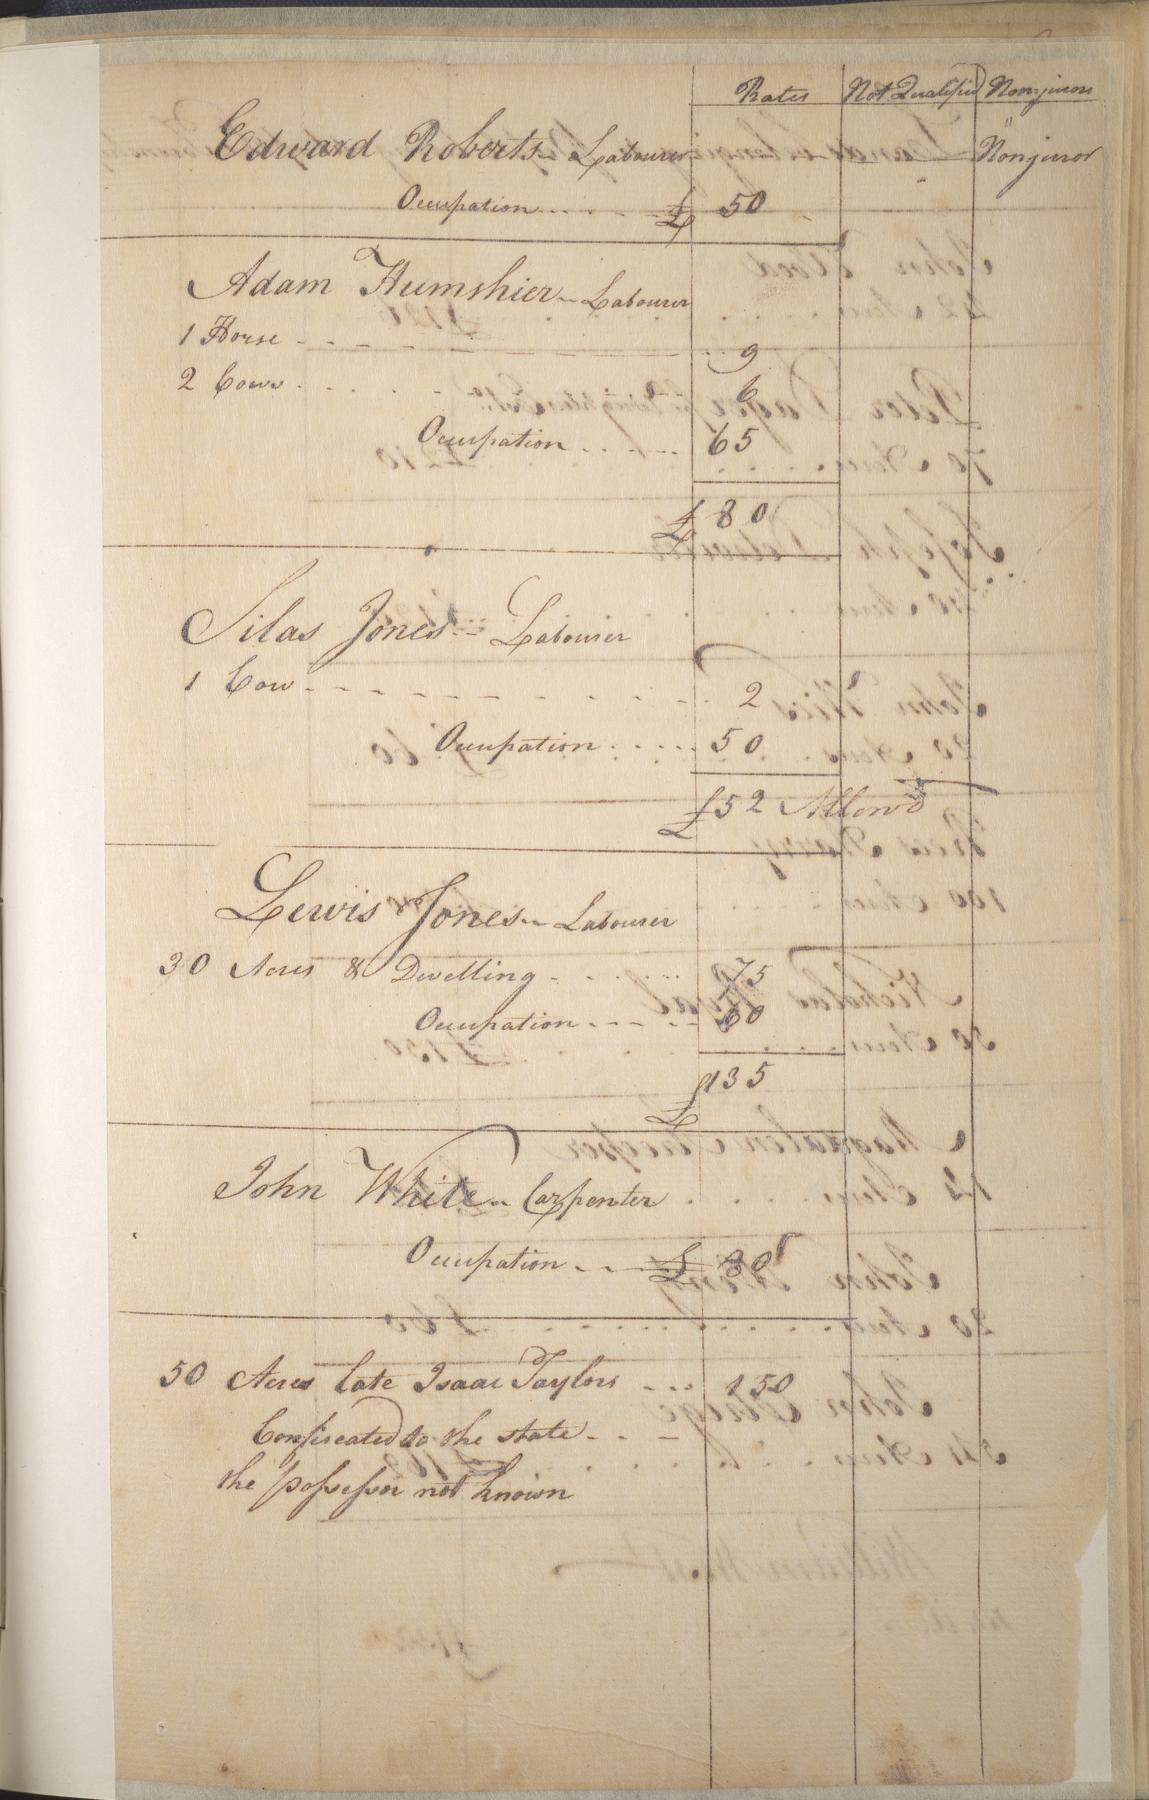 Rates Not Qualified Nonjurors
Edward Roberts Labourer " Nonjuror
Occupation £ 50
Adam Humshier Labourer
1 Horse 9
2 Cows 6
Occupation 65
£ 80
Silas Jones Labourer
1 Cow 2
Occupation 50
£ 52 Allow'd
Lewis Jones Labourer
30 Acres & Dwelling 75
Occupation 60
£ 135
John White Carpenter
Occupation £ 80
50 Acres late Isaac Taylors 150
Confiscated to the state
the possessor not known